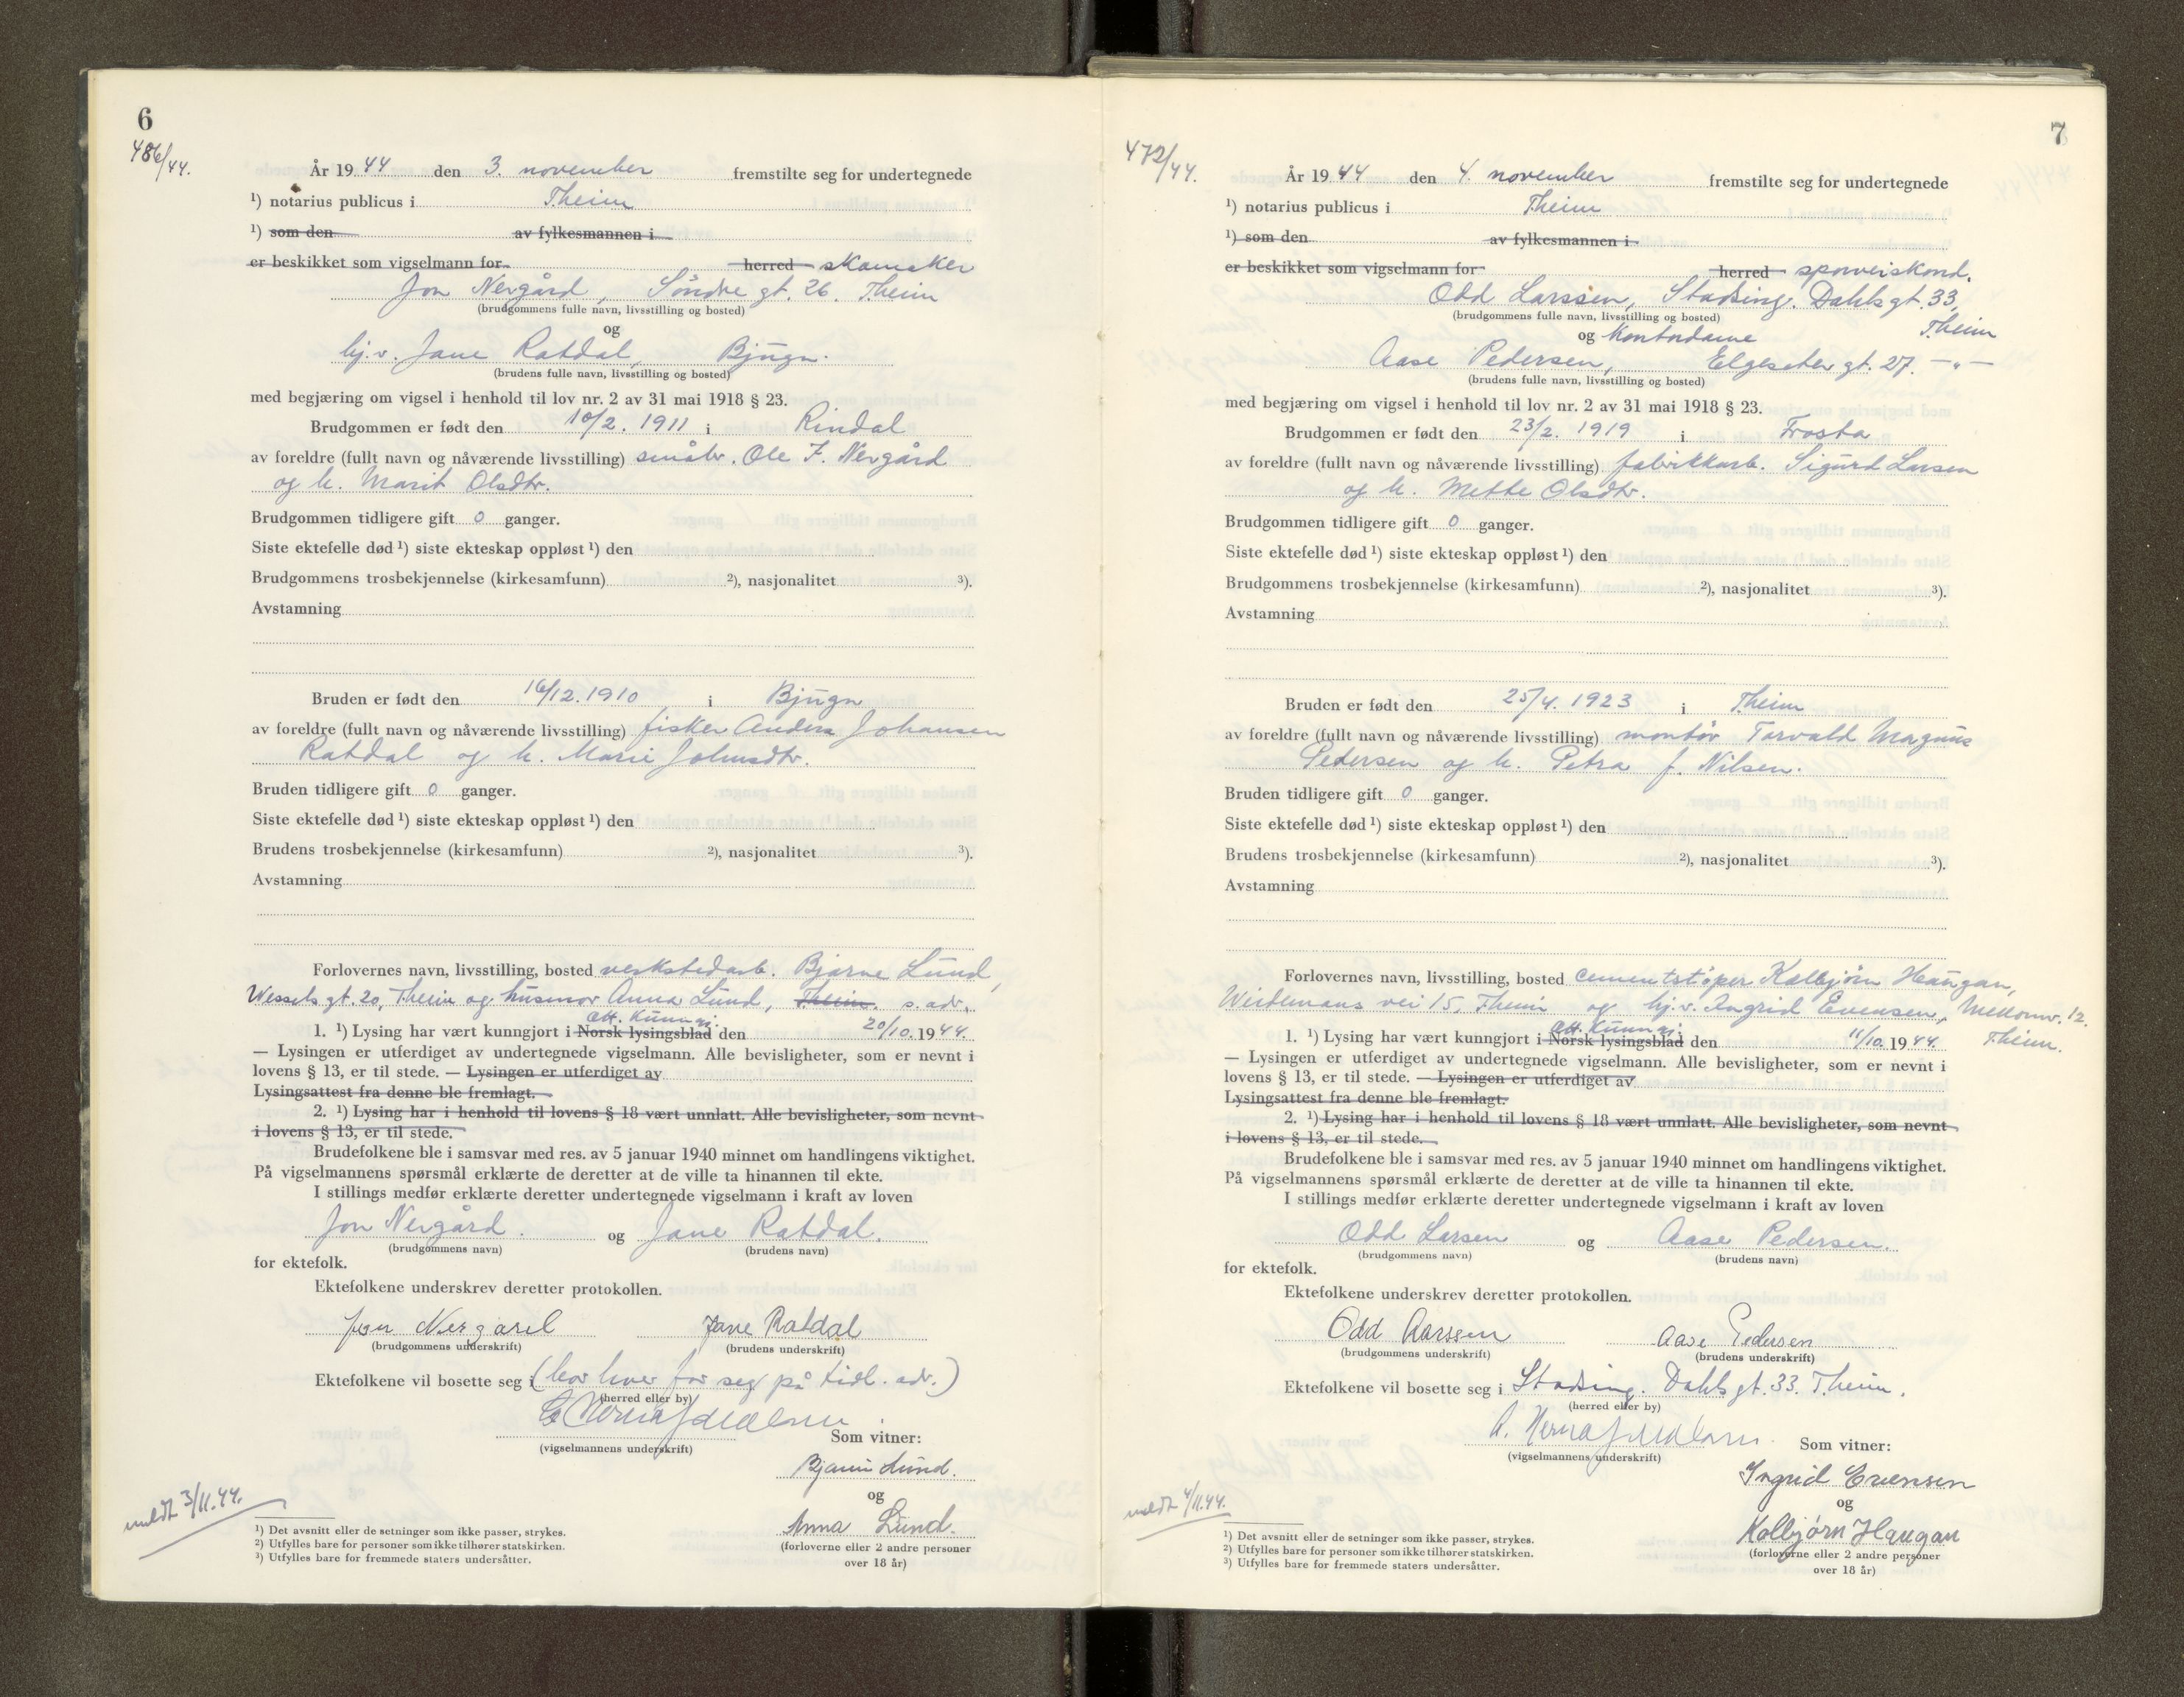 6
486/44.
År 1944 den 3. november fremstilte seg for undertegnede
¹) notarius publicus i Theim
¹) som den av fylkesmannen i
er beskikket som vigselmann for herred skomaker
Jon Nergård, Søndre gt. 26. Theim
(brudgommens fulle navn, livsstilling og bosted)
og
hj.v. Jane Ratdal, Bjugn.
(brudens fulle navn, livsstilling og bosted)
med begjæring om vigsel i henhold til lov nr. 2 av 31 mai 1918 § 23.
Brudgommen er født den 10/2. 1911 i Rindal
av foreldre (fullt navn og nåværende livsstilling) småbr. Ole J. Nergård
og h. Marit Olsdtr.
Brudgommen tidligere gift 0 ganger.
Siste ektefelle død ¹) siste ekteskap oppløst ¹) den
Brudgommens trosbekjennelse (kirkesamfunn) ²), nasjonalitet ³).
Avstamning
Bruden er født den 16/12. 1910 i Bjugn
av foreldre (fullt navn og nåværende livsstilling) fisker Anders Johansen
Ratdal og h. Marie Johnsdtr.
Bruden tidligere gift 0 ganger.
Siste ektefelle død ¹) siste ekteskap oppløst ¹) den
Brudens trosbekjennelse (kirkesamfunn) ²), nasjonalitet ³).
Avstamning
Forlovernes navn, livsstilling, bosted verkstedarb. Bjarne Lund,
Wessels gt. 20, Theim og husmor Anna Lund, Theim. s. adr.
off. kunngj.
1. ¹) Lysing har vært kunngjort i Norsk lysingsblad den 20/10. 1944.
— Lysingen er utferdiget av undertegnede vigselmann. Alle bevisligheter, som er nevnt i
lovens § 13, er til stede. — Lysingen er utferdiget av
Lysingsattest fra denne ble fremlagt.
2. ¹) Lysing har i henhold til lovens § 18 vært unnlatt. Alle bevisligheter, som nevnt
i lovens § 13, er til stede.
Brudefolkene ble i samsvar med res. av 5 januar 1940 minnet om handlingens viktighet.
På vigselmannens spørsmål erklærte de deretter at de ville ta hinannen til ekte.
I stillings medfør erklærte deretter undertegnede vigselmann i kraft av loven
Jon Nergård. og Jane Ratdal.
(brudgommens navn) (brudens navn)
for ektefolk.
Ektefolkene underskrev deretter protokollen.
Jon Nergård Jane Ratdal
(brudgommens underskrift) (brudens underskrift)
Ektefolkene vil bosette seg i (bor hver for seg på tidl. adr.)
(herred eller by)
Som vitner:
(vigselmannens underskrift)
Bjarne Lund.
og
Anna Lund.
(forloverne eller 2 andre personer
over 18 år)
meldt 3/11.44.
¹) Det avsnitt eller de setninger som ikke passer, strykes.
²) Utfylles bare for personer som ikke tilhører statskirken.
³) Utfylles bare for fremmede staters undersåtter.
7
472/44.
År 1944 den 4. november fremstilte seg for undertegnede
¹) notarius publicus i Theim
¹) som den av fylkesmannen i
er beskikket som vigselmann for herred sporveiskond.
Odd Larssen, Stadsing. Dahls gt. 33,
(brudgommens fulle navn, livsstilling og bosted)
Theim
og kontordame
Aase Pedersen, Elgeseter gt. 27. —"—
(brudens fulle navn, livsstilling og bosted)
med begjæring om vigsel i henhold til lov nr. 2 av 31 mai 1918 § 23.
Brudgommen er født den 23/2. 1919 i Frosta
av foreldre (fullt navn og nåværende livsstilling) fabrikkarb. Sigurd Larsen
og h. Mette Olsdtr.
Brudgommen tidligere gift 0 ganger.
Siste ektefelle død ¹) siste ekteskap oppløst ¹) den
Brudgommens trosbekjennelse (kirkesamfunn) ²), nasjonalitet ³).
Avstamning
Bruden er født den 25/4. 1923 i Theim
av foreldre (fullt navn og nåværende livsstilling) montør Torvald Magnus
Pedersen og h. Petra f. Nilsen.
Bruden tidligere gift 0 ganger.
Siste ektefelle død ¹) siste ekteskap oppløst ¹) den
Brudens trosbekjennelse (kirkesamfunn) ²), nasjonalitet ³).
Avstamning
Forlovernes navn, livsstilling, bosted cementstøper Kolbjørn Haugan,
Wiedemans vei 15, Theim og hj.v. Ingrid Evensen, Mellomv. 12.
Theim.
off. kunngj.
1. ¹) Lysing har vært kunngjort i Norsk lysingsblad den 11/10. 1944.
— Lysingen er utferdiget av undertegnede vigselmann. Alle bevisligheter, som er nevnt i
lovens § 13, er til stede. — Lysingen er utferdiget av
Lysingsattest fra denne ble fremlagt.
2. ¹) Lysing har i henhold til lovens § 18 vært unnlatt. Alle bevisligheter, som nevnt
i lovens § 13, er til stede.
Brudefolkene ble i samsvar med res. av 5 januar 1940 minnet om handlingens viktighet.
På vigselmannens spørsmål erklærte de deretter at de ville ta hinannen til ekte.
I stillings medfør erklærte deretter undertegnede vigselmann i kraft av loven
Odd Larsen og Aase Pedersen.
(brudgommens navn) (brudens navn)
for ektefolk.
Ektefolkene underskrev deretter protokollen.
Odd Larssen Aase Pedersen
(brudgommens underskrift) (brudens underskrift)
Ektefolkene vil bosette seg i Stadsing. Dahls gt. 33. Theim.
(herred eller by)
Som vitner:
(vigselmannens underskrift)
Ingrid Evensen
og
Kolbjørn Haugan
(forloverne eller 2 andre personer
over 18 år)
meldt 4/11.44.
¹) Det avsnitt eller de setninger som ikke passer, strykes.
²) Utfylles bare for personer som ikke tilhører statskirken.
³) Utfylles bare for fremmede staters undersåtter.